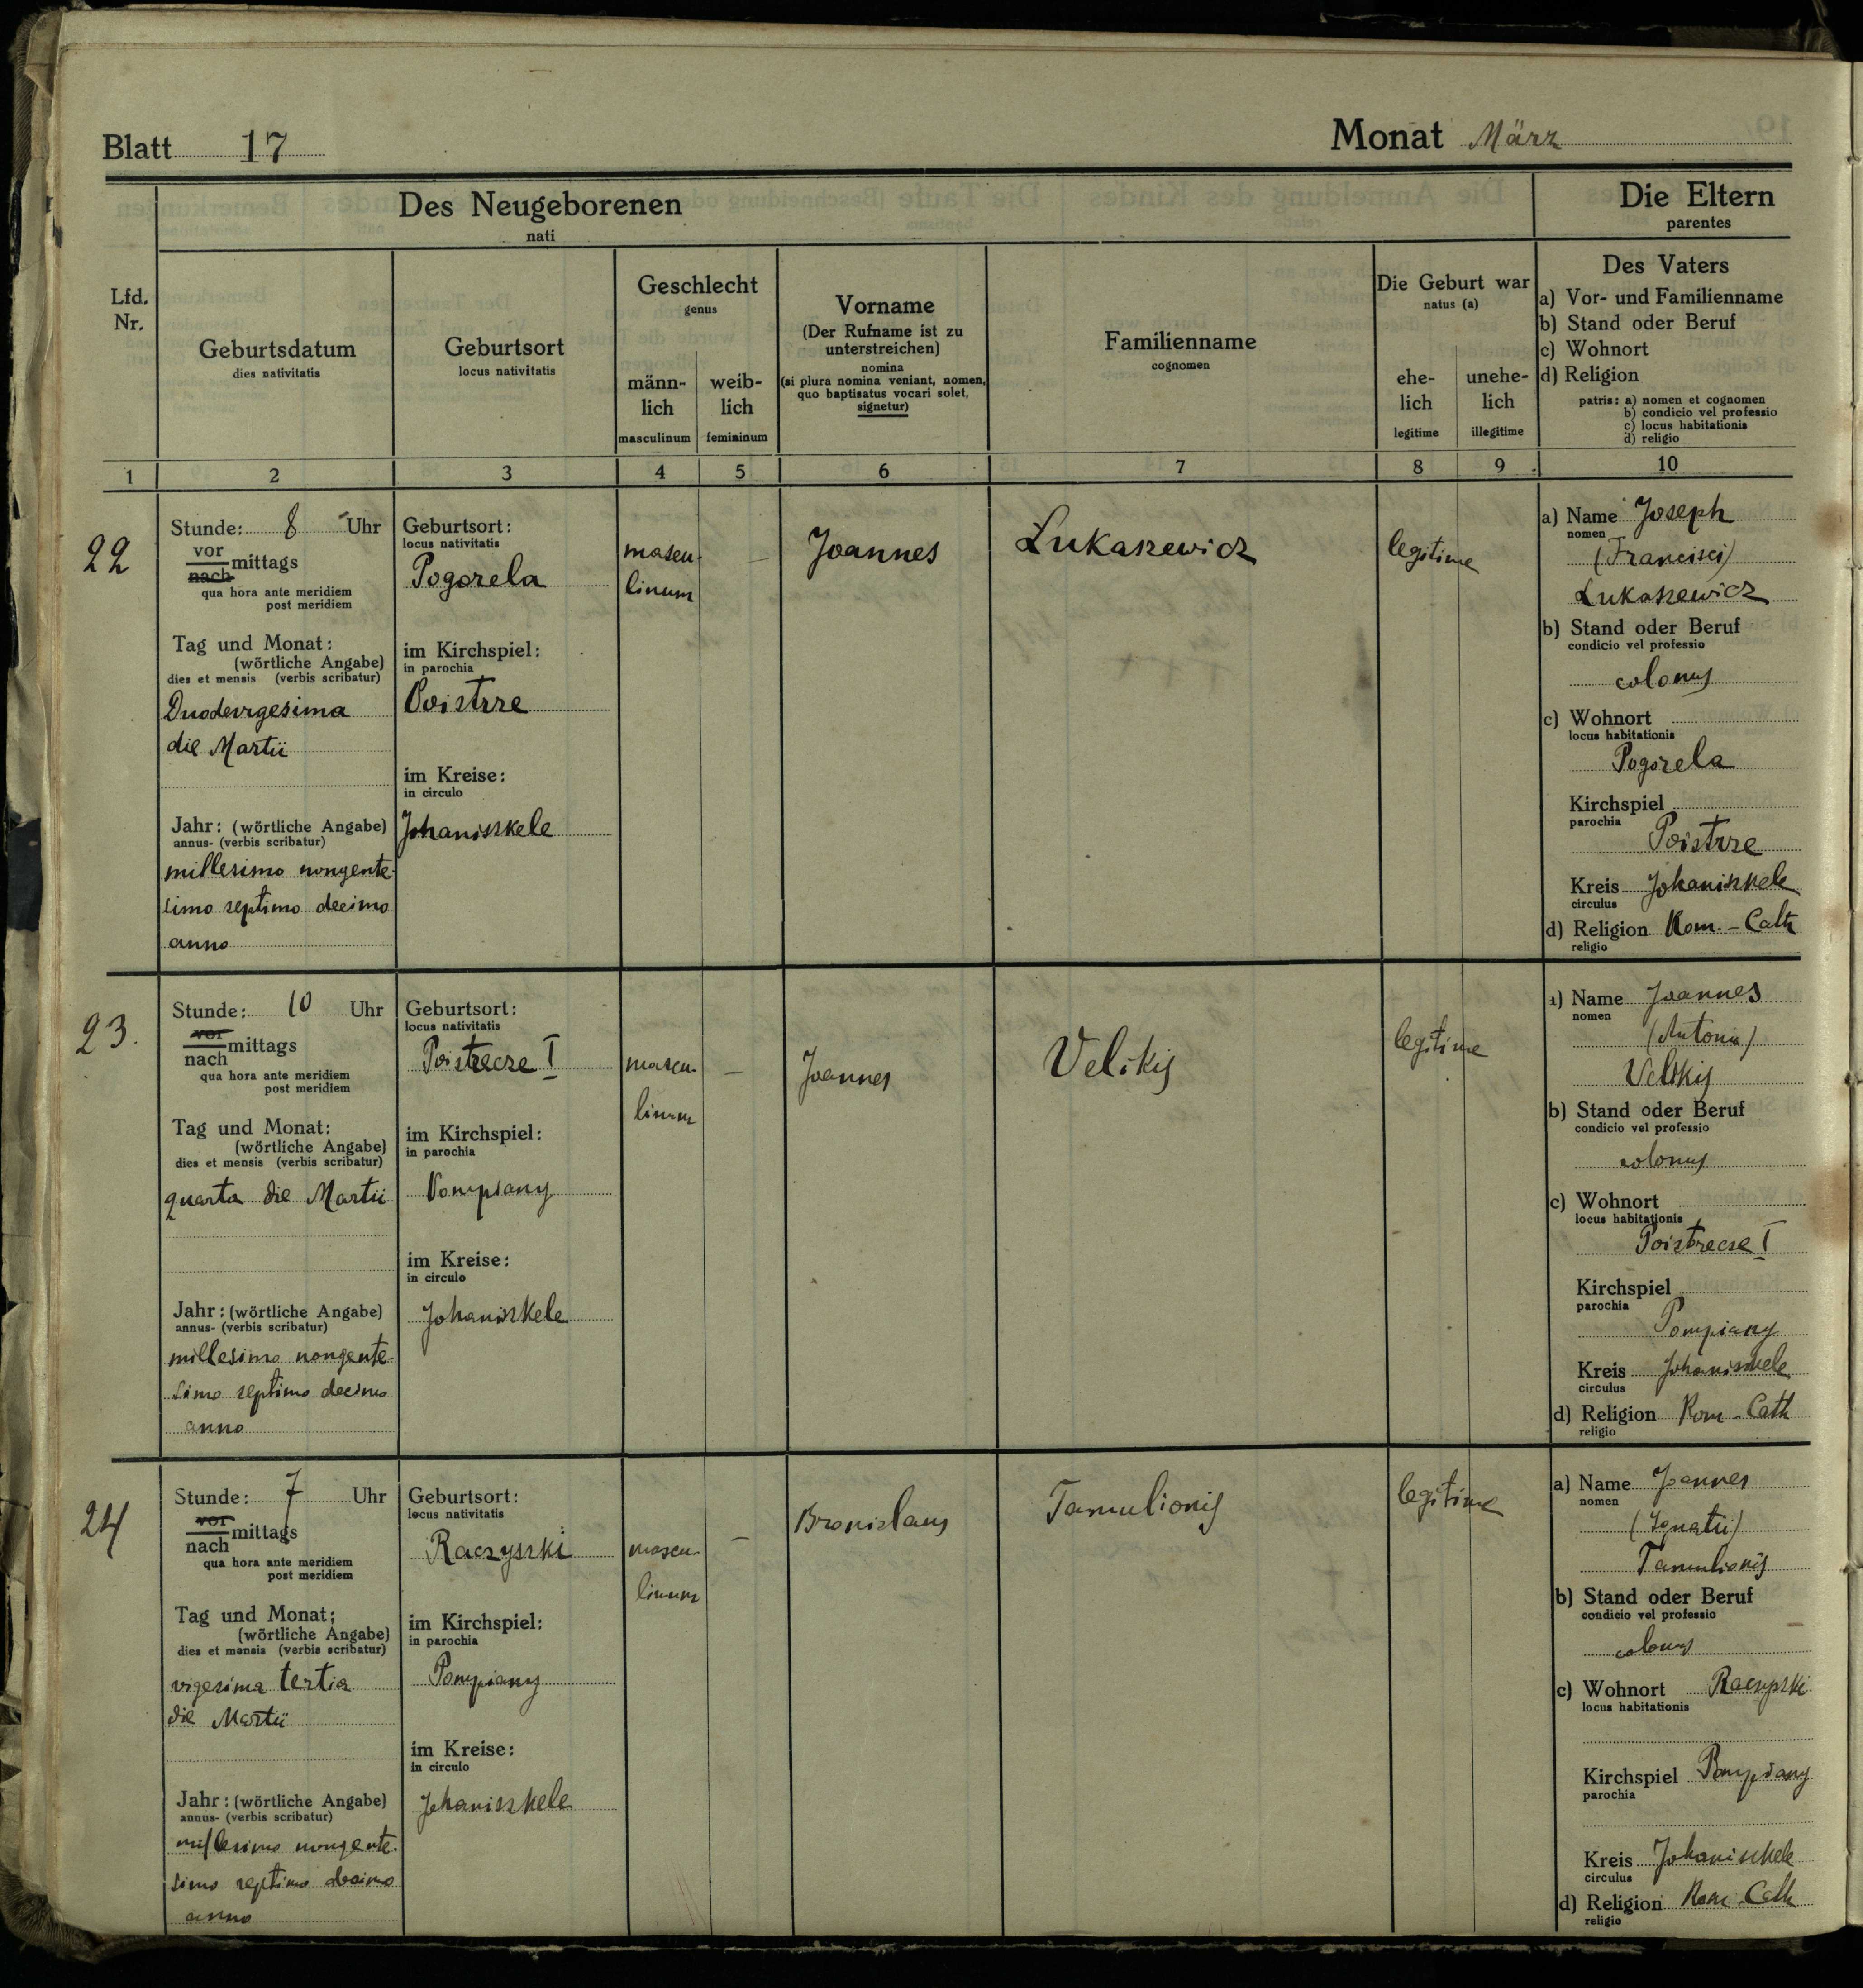 Blatt 17
Monat März
Des Neugeborenen
nati
Die Eltern
parentes
Lfd.
Nr.
Geburtsdatum
dies nativitatis
Geburtsort
locus nativitatis
Geschlecht
genus
männ-
lich
masculinum
weib-
lich
femininum
Vorname
(Der Rufname ist zu
unterstreichen)
nomina
(si plura nomina veniant, nomen,
quo baptisatus vocari solet,
signetur)
Familienname
cognomen
Die Geburt war
natus (a)
ehe-
lich
legitime
unehe-
lich
illegitime
Des Vaters
a) Vor- und Familienname
b) Stand oder Beruf
c) Wohnort
d) Religion
patris: a) nomen et cognomen
b) condicio vel professio
c) locus habitationis
d) religio
1 2 3 4 5 6 7 8 9 10
22
Stunde: 8 Uhr
vor
nach mittags
qua hora ante meridiem
post meridiem
Tag und Monat:
(wörtliche Angabe)
dies et mensis (verbis scribatur)
Duodevigesima
die Martii
Jahr: (wörtliche Angabe)
annus- (verbis scribatur)
millesimo nongente-
simo septimo decimo
anno
Geburtsort:
locus nativitatis
Pogorela
im Kirchspiel:
in parochia
Poistrze
im Kreise:
in circulo
Johaniszkele
mascu-
linum
Joannes
Łukaszewicz
legitime
a) Name Joseph
nomen
(Francisci)
Łukaszewicz
b) Stand oder Beruf
condicio vel professio
colonus
c) Wohnort
locus habitationis
Pogorela
Kirchspiel
parochia
Poistrze
Kreis Johaniszkele
circulus
d) Religion Rom.-Cath
religio
23.
Stunde: 10 Uhr
vor
nach mittags
qua hora ante meridiem
post meridiem
Tag und Monat:
(wörtliche Angabe)
dies et mensis (verbis scribatur)
quarta die Martii
Jahr: (wörtliche Angabe)
annus- (verbis scribatur)
millesimo nongente-
simo septimo decimo
anno
Geburtsort:
locus nativitatis
Poistrecze I
im Kirchspiel:
in parochia
Pompiany
im Kreise:
in circulo
Johaniszkele
mascu-
linum
—
Joannes
Velikis
legitime
a) Name Joannes
nomen
(Antonii)
Velikis
b) Stand oder Beruf
condicio vel professio
colonus
c) Wohnort
locus habitationis
Poistrecze I
Kirchspiel
parochia
Pompiany
Kreis Johaniszkele
circulus
d) Religion Rom-Cath
religio
24
Stunde: 7 Uhr
vor
nach mittags
qua hora ante meridiem
post meridiem
Tag und Monat:
(wörtliche Angabe)
dies et mensis (verbis scribatur)
vigesima tertia
die Martii
Jahr: (wörtliche Angabe)
annus- (verbis scribatur)
millesimo nongente-
simo septimo decimo
anno
Geburtsort:
locus nativitatis
Raczyszki
im Kirchspiel:
in parochia
Pompiany
im Kreise:
in circulo
Johaniszkele
mascu-
linum
—
Bronislaus
Tamulionis
legitime
a) Name Joannes
nomen
(Ignatii)
Tamulionis
b) Stand oder Beruf
condicio vel professio
colonus
c) Wohnort Raczyszki
locus habitationis
Kirchspiel Pompiany
parochia
Kreis Johaniszkele
circulus
d) Religion Rom Cath
religio